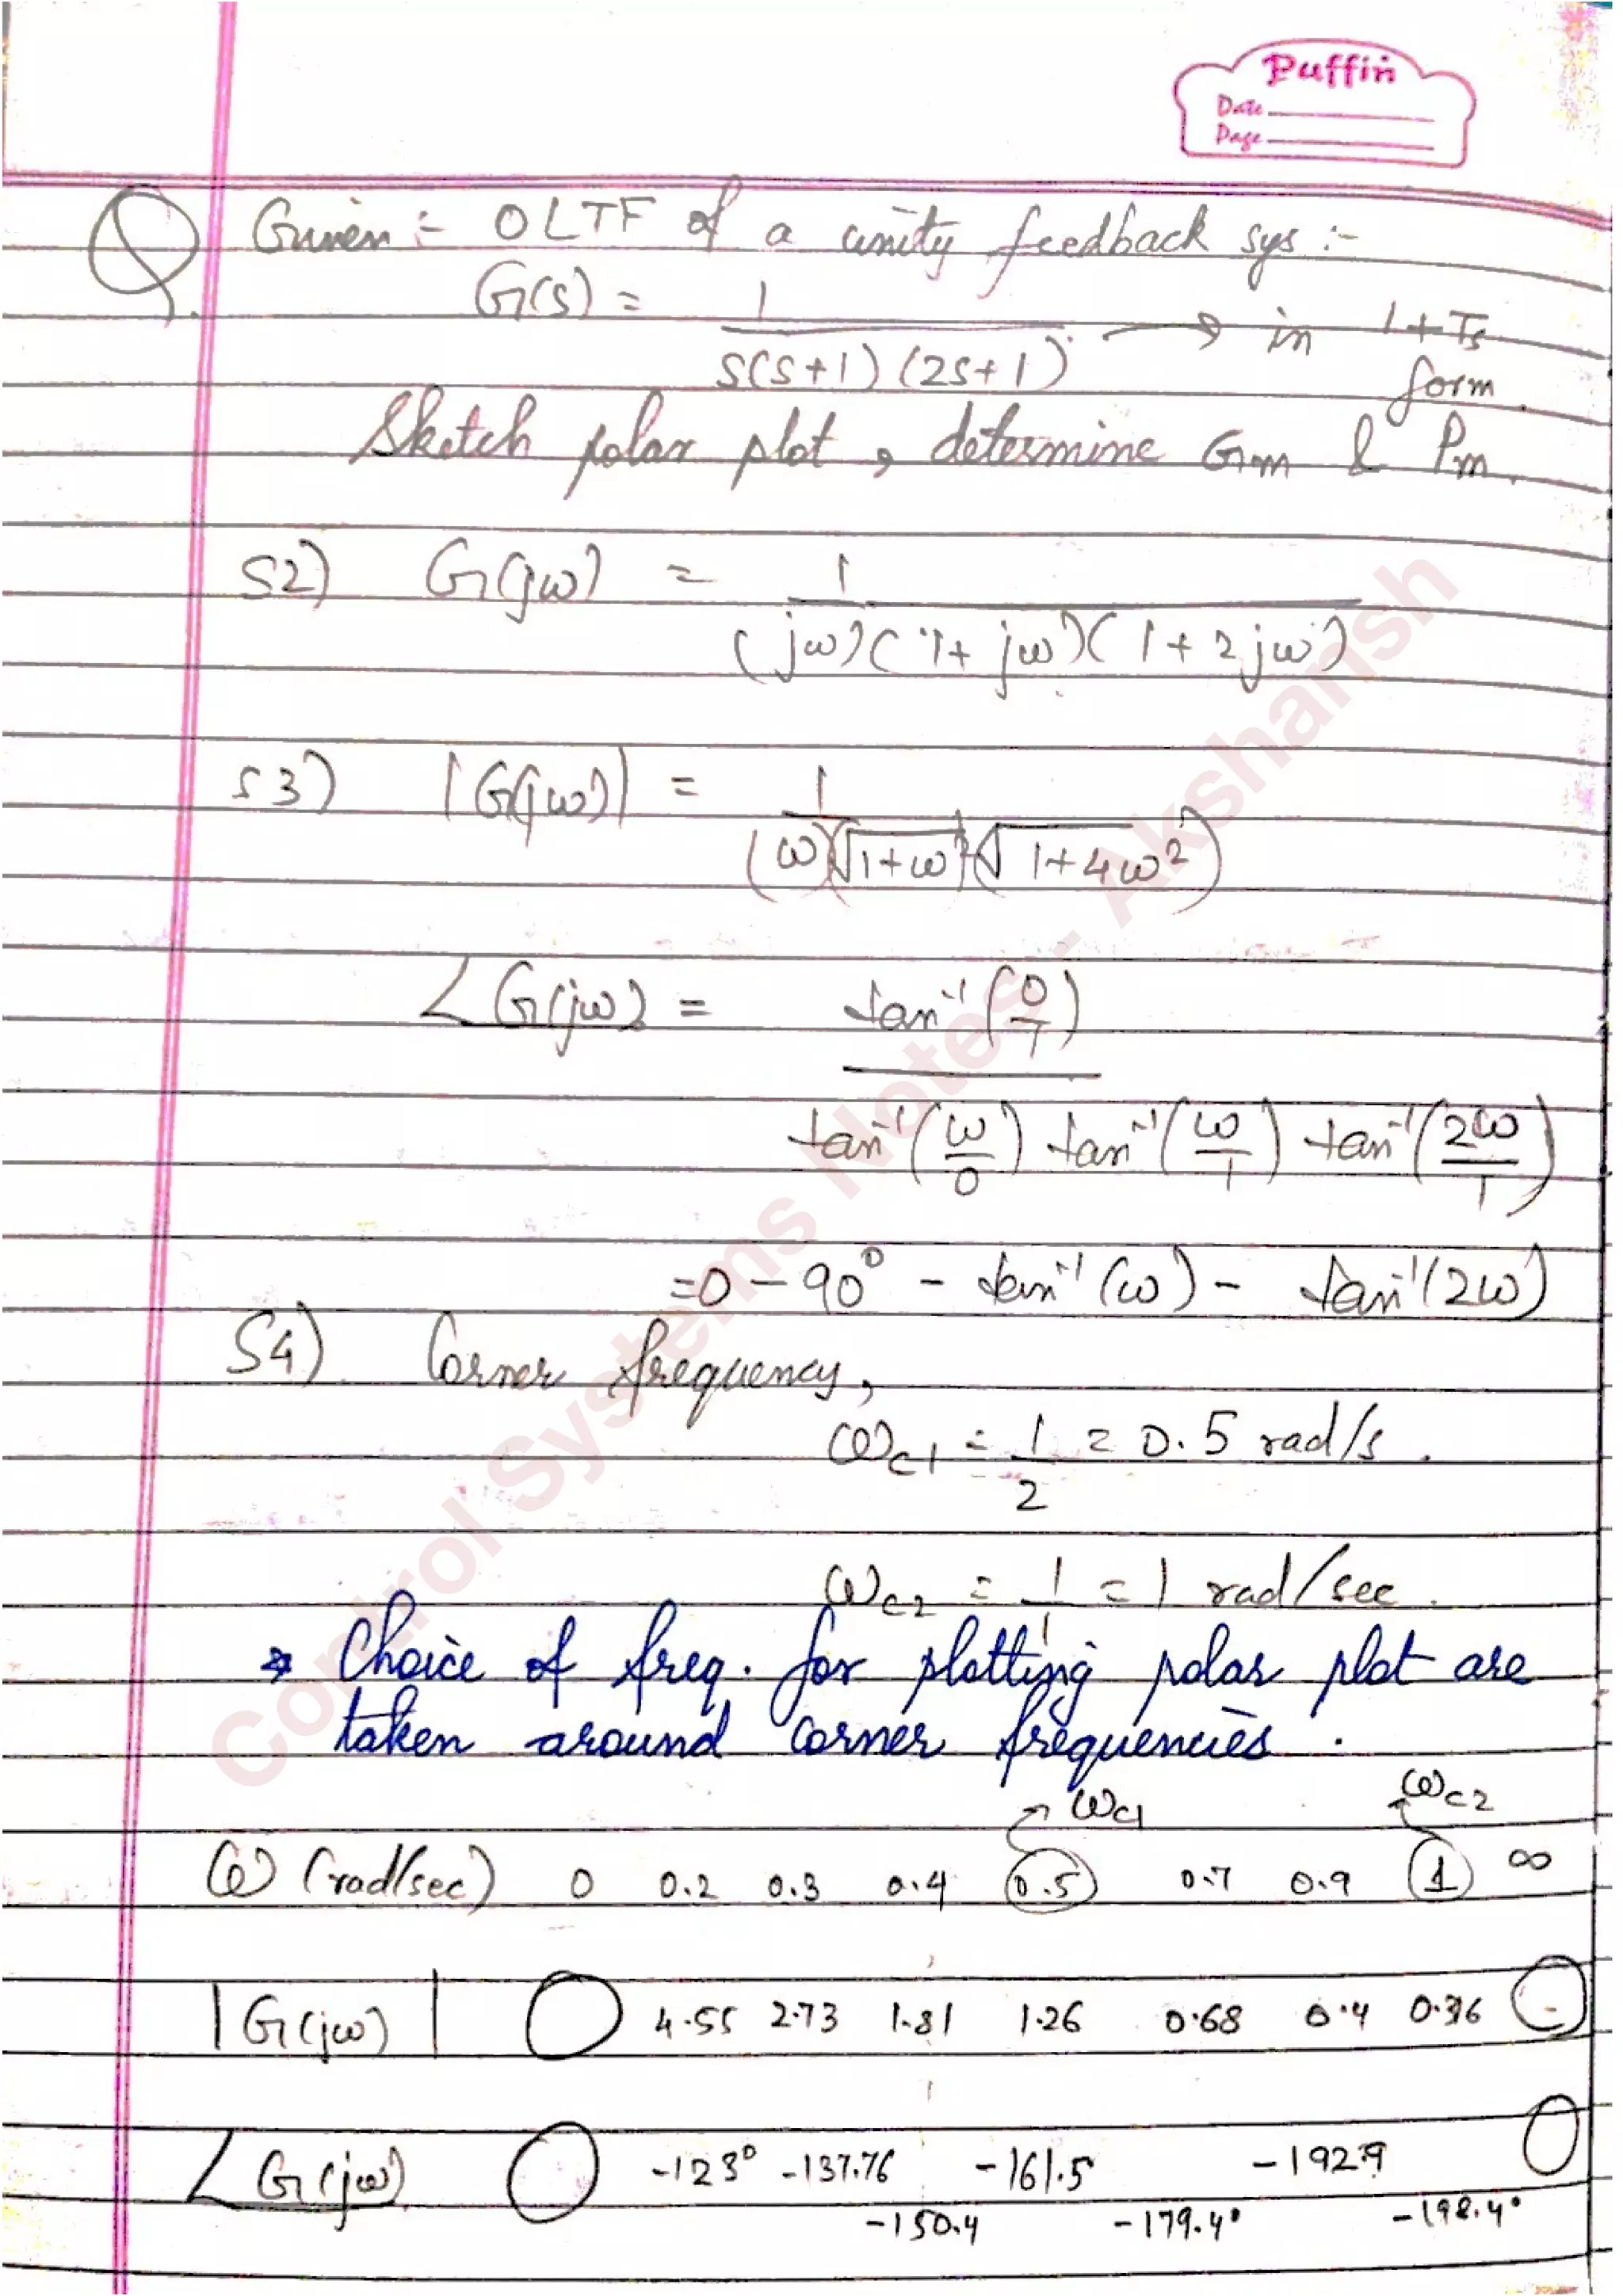 Puffin
Date
Page
Q. Given :- OLTF of a unity feedback sys :-
G(s) = 1 / s(s+1)(2s+1) → in 1+Ts form.
Sketch polar plot, determine Gm & Pm.
S2) G(jω) = 1 / (jω)(1+jω)(1+2jω)
S3) |G(jω)| = 1 / (ω)(√1+ω²)(√1+4ω²)
∠G(jω) = tan⁻¹(0/1)
tan⁻¹(ω/0) tan⁻¹(ω/1) tan⁻¹(2ω/1)
= 0 - 90° - tan⁻¹(ω) - tan⁻¹(2ω)
S4) Corner frequency,
ωc1 = 1/2 = 0.5 rad/s.
ωc2 = 1/1 = 1 rad/sec.
* Choice of freq. for plotting polar plot are
taken around corner frequencies.
ωc1 ωc2
ω (rad/sec) 0 0.2 0.3 0.4 0.5 0.7 0.9 1 ∞
|G(jω)| 4.55 2.73 1.81 1.26 0.68 0.4 0.316
∠G(jω) -123° -137.76 -150.4 -161.5 -179.4° -192.9 -198.4°
Control Systems Notes - Akshansh